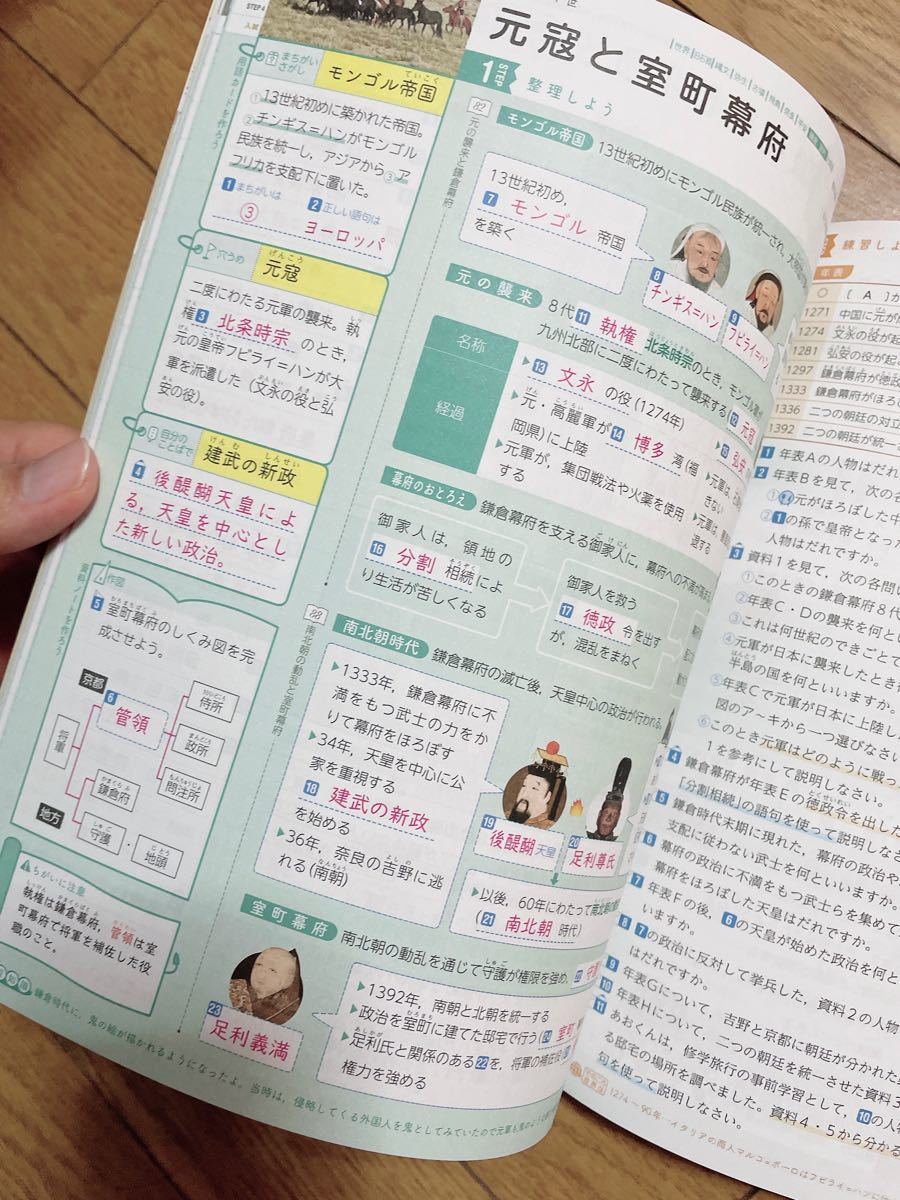 STEP4
元寇と室町幕府
世界 旧石器 縄文 弥生 古墳 飛鳥 奈良 平安
STEP 1 整理しよう
用語カードを作ろう
まちがいさがし
モンゴル帝国
ていこく
①13世紀初めに築かれた帝国。
②チンギス=ハンがモンゴル
民族を統一し，アジアから③ア
フリカを支配下に置いた。
1 まちがいは
③
2 正しい語句は
ヨーロッパ
穴うめ
元寇
げんこう
二度にわたる元軍の襲来。執
権 3 北条時宗 のとき，
元の皇帝フビライ=ハンが大
軍を派遣した（文永の役と弘
安の役）。
自分のことばで
建武の新政
けんむ しんせい
4 後醍醐天皇によ
る，天皇を中心とし
た新しい政治。
資料ノートを作ろう
作図
5 室町幕府のしくみ図を完
成させよう。
京都
将軍
6 管領
侍所
政所
問注所
鎌倉府
地方
守護・地頭
ちがいに注意
執権は鎌倉幕府，管領は室
町幕府で将軍を補佐した役
職のこと。
82 元の襲来と鎌倉幕府
モンゴル帝国
13世紀初めにモンゴル民族が統一され，
13世紀初め，
7 モンゴル 帝国
を築く
8 チンギス=ハン
9 フビライ=ハン
元の襲来
8代 11 執権 北条時宗のとき，モンゴル
九州北部に二度にわたって襲来する（12 元寇
名称
経過
13 文永 の役（1274年）
▶元・高麗軍が 14 博多 湾（福
岡県）に上陸
▶元軍が，集団戦法や火薬を使用
する
15 弘安
▶元軍は，
きない
▶元軍は，
退する
幕府のおとろえ
鎌倉幕府を支える御家人に，幕府への不満が
御家人は，領地の
16 分割 相続によ
り生活が苦しくなる
御家人を救う
17 徳政 令を出す
が，混乱をまねく
88 南北朝の動乱と室町幕府
南北朝時代
鎌倉幕府の滅亡後，天皇中心の政治が行われる。
▶1333年，鎌倉幕府に不
満をもつ武士の力をか
りて幕府をほろぼす
▶34年，天皇を中心に公
家を重視する
18 建武の新政
を始める
▶36年，奈良の吉野に逃
れる（南朝）
19 後醍醐天皇
20 足利尊氏
▶以後，60年にわたって南北朝の
（21 南北朝 時代）
室町幕府
南北朝の動乱を通じて守護が権限を強め，
23 足利義満
▶1392年，南朝と北朝を統一する
▶政治を室町に建てた邸宅で行う
室町
▶足利氏と関係のある22を，将軍の補佐役
権力を強める
鎌倉時代に，鬼の絵が描かれるようになったよ。当時は，侵略してくる外国人を鬼としてみていたので元軍も鬼のよう
練習し
年表
〔 A 〕が
1271 中国に元が
1274 文永の役が起
1281 弘安の役が起
1297 鎌倉幕府が徳政
1333 鎌倉幕府がほろ
1336 二つの朝廷の対立
1392 二つの朝廷が統一
1 年表Aの人物はだれ
2 年表Bを見て，次の各
① 元がほろぼした中
② 1の孫で皇帝となった
人物はだれですか。
3 資料1を見て，次の各問い
①このときの鎌倉幕府8代
②年表C・Dの襲来を何とい
③これは何世紀のできごとで
④元軍が日本に襲来したとき
半島の国を何といいますか。
⑤年表Cで元軍が日本に上陸し
図のア～キから一つ選びなさい
⑥このとき元軍はどのように戦っ
1を参考にして説明しなさい。
4 鎌倉幕府が年表Eの徳政令を出した
「分割相続」の語句を使って説明しな
5 鎌倉時代末期に現れた，幕府の政治や
支配に従わない武士を何といいますか。
6 幕府の政治に不満をもつ武士らを集めて
幕府をほろぼした天皇はだれですか。
7 年表Fの後，6の天皇が始めた政治を何と
いますか。
8 7の政治に反対して挙兵した，資料2の人物
はだれですか。
9 年表Gについて，吉野と京都に朝廷が分かれた
10 年表Hについて，二つの朝廷を統一させた資料3
11 あおくんは，修学旅行の事前学習として，10の人物
る邸宅の場所を調べました。資料4・5から分かる
句を使って説明しなさい。
1274～90年…イタリアの商人マルコ=ポーロはフビライ=ハンに